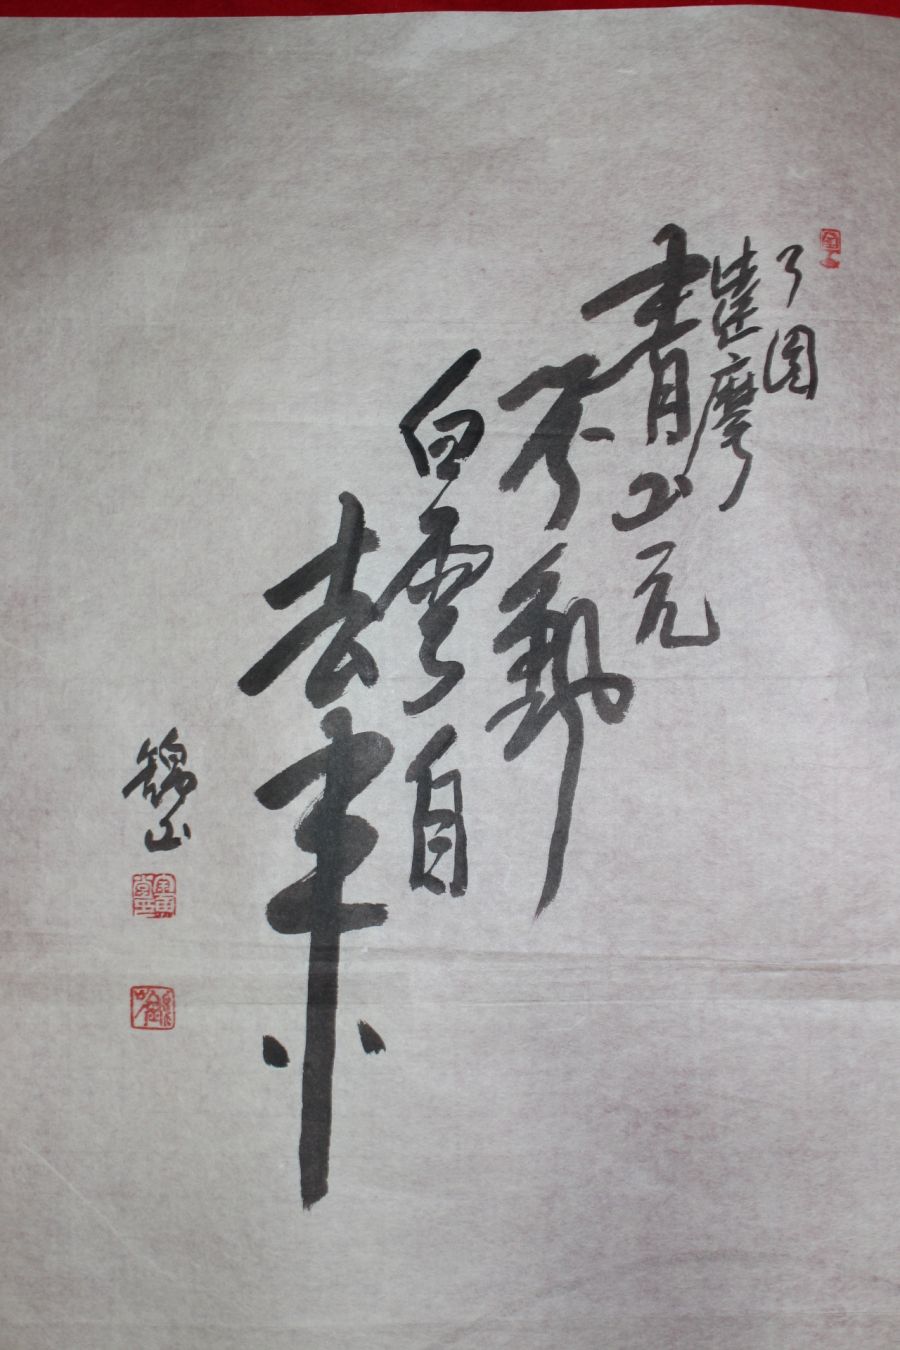 了圓
達摩
青山元
不動
白雲自
去来
錦山